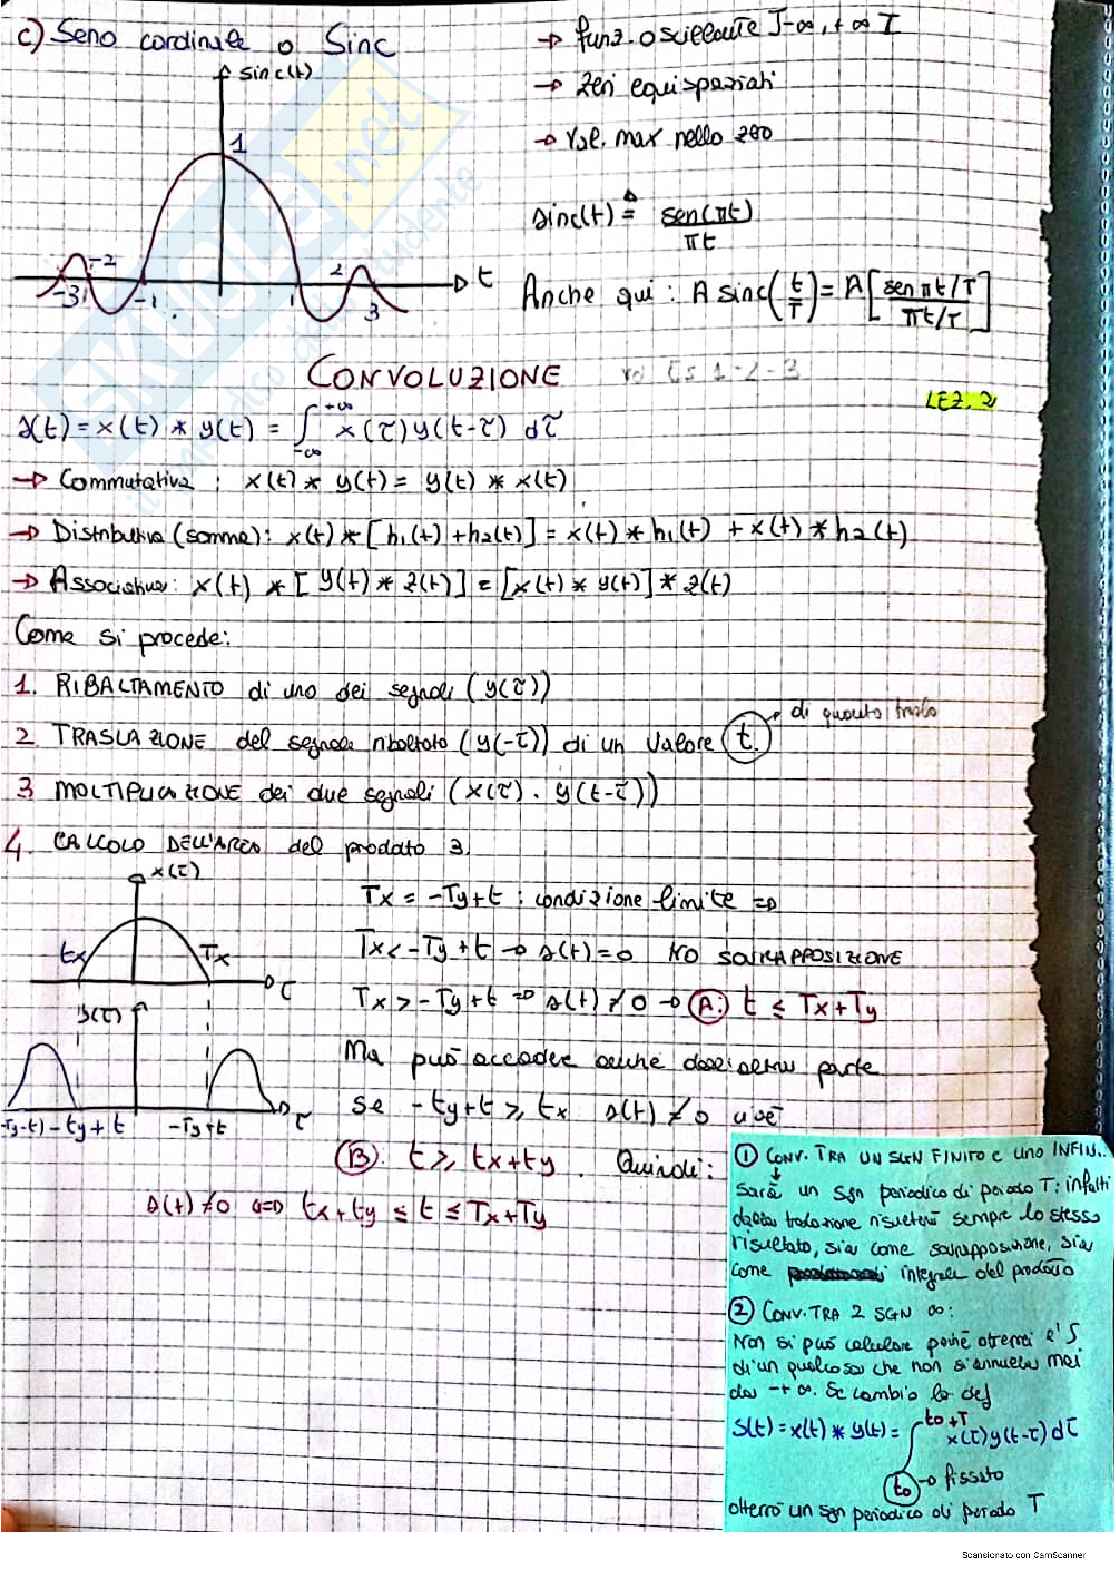 c) Seno cardinale o Sinc
→ funz. oscillante ]-∞, +∞[
→ Zeri equispaziati
→ Val. max nello zero
sinc(t)
1
-3 -2 -1 1 2 3 t
sinc(t) ≜ sen(πt) / πt
Anche qui: A sinc(t/T) = A [sen πt/T / πt/T]
CONVOLUZIONE
Es 1-2-3
LEZ. 2
s(t) = x(t) * y(t) = ∫_{-∞}^{+∞} x(τ) y(t-τ) dτ
→ Commutativa: x(t) * y(t) = y(t) * x(t)
→ Distributiva (somma): x(t) * [h1(t) + h2(t)] = x(t) * h1(t) + x(t) * h2(t)
→ Associativa: x(t) * [y(t) * z(t)] = [x(t) * y(t)] * z(t)
Come si procede:
1. RIBALTAMENTO di uno dei segnali (y(τ))
2 TRASLAZIONE del segnale ribaltato (y(-τ)) di un valore t. → di quanto traslo
3 MOLTIPLICAZIONE dei due segnali (x(τ) · y(t-τ))
4. CALCOLO DELL'AREA del prodotto 3
x(τ)
tx Tx τ
y(τ)
-Ty-t) -ty+t -Ty+t τ
Tx = -Ty+t : condizione limite ⇒
Tx < -Ty+t → s(t) = 0 NO SOVRAPPOSIZIONE
Tx > -Ty+t ⇒ s(t) ≠ 0 → (A.) t ≤ Tx+Ty
Ma può accadere anche dall'altra parte
Se -ty+t ≥ tx s(t) ≠ 0 cioè
(B). t ≥ tx+ty Quindi:
s(t) ≠ 0 ⇔ tx+ty ≤ t ≤ Tx+Ty
① CONV. TRA UN SGN FINITO E UNO INFIN.:
Sarà un sgn periodico di periodo T: infatti
dalla traslazione risulterà sempre lo stesso
risultato, sia come sovrapposizione, sia
come integrale del prodotto
② CONV. TRA 2 SGN ∞:
Non si può calcolare poiché otterrei l'∫
di un qualcosa che non si annulla mai
da -+∞. Se cambio la def
s(t) = x(t) * y(t) = ∫_{t0}^{t0+T} x(τ) y(t-τ) dτ
t0 → fissato
otterrò un sgn periodico di periodo T
Scansionato con CamScanner